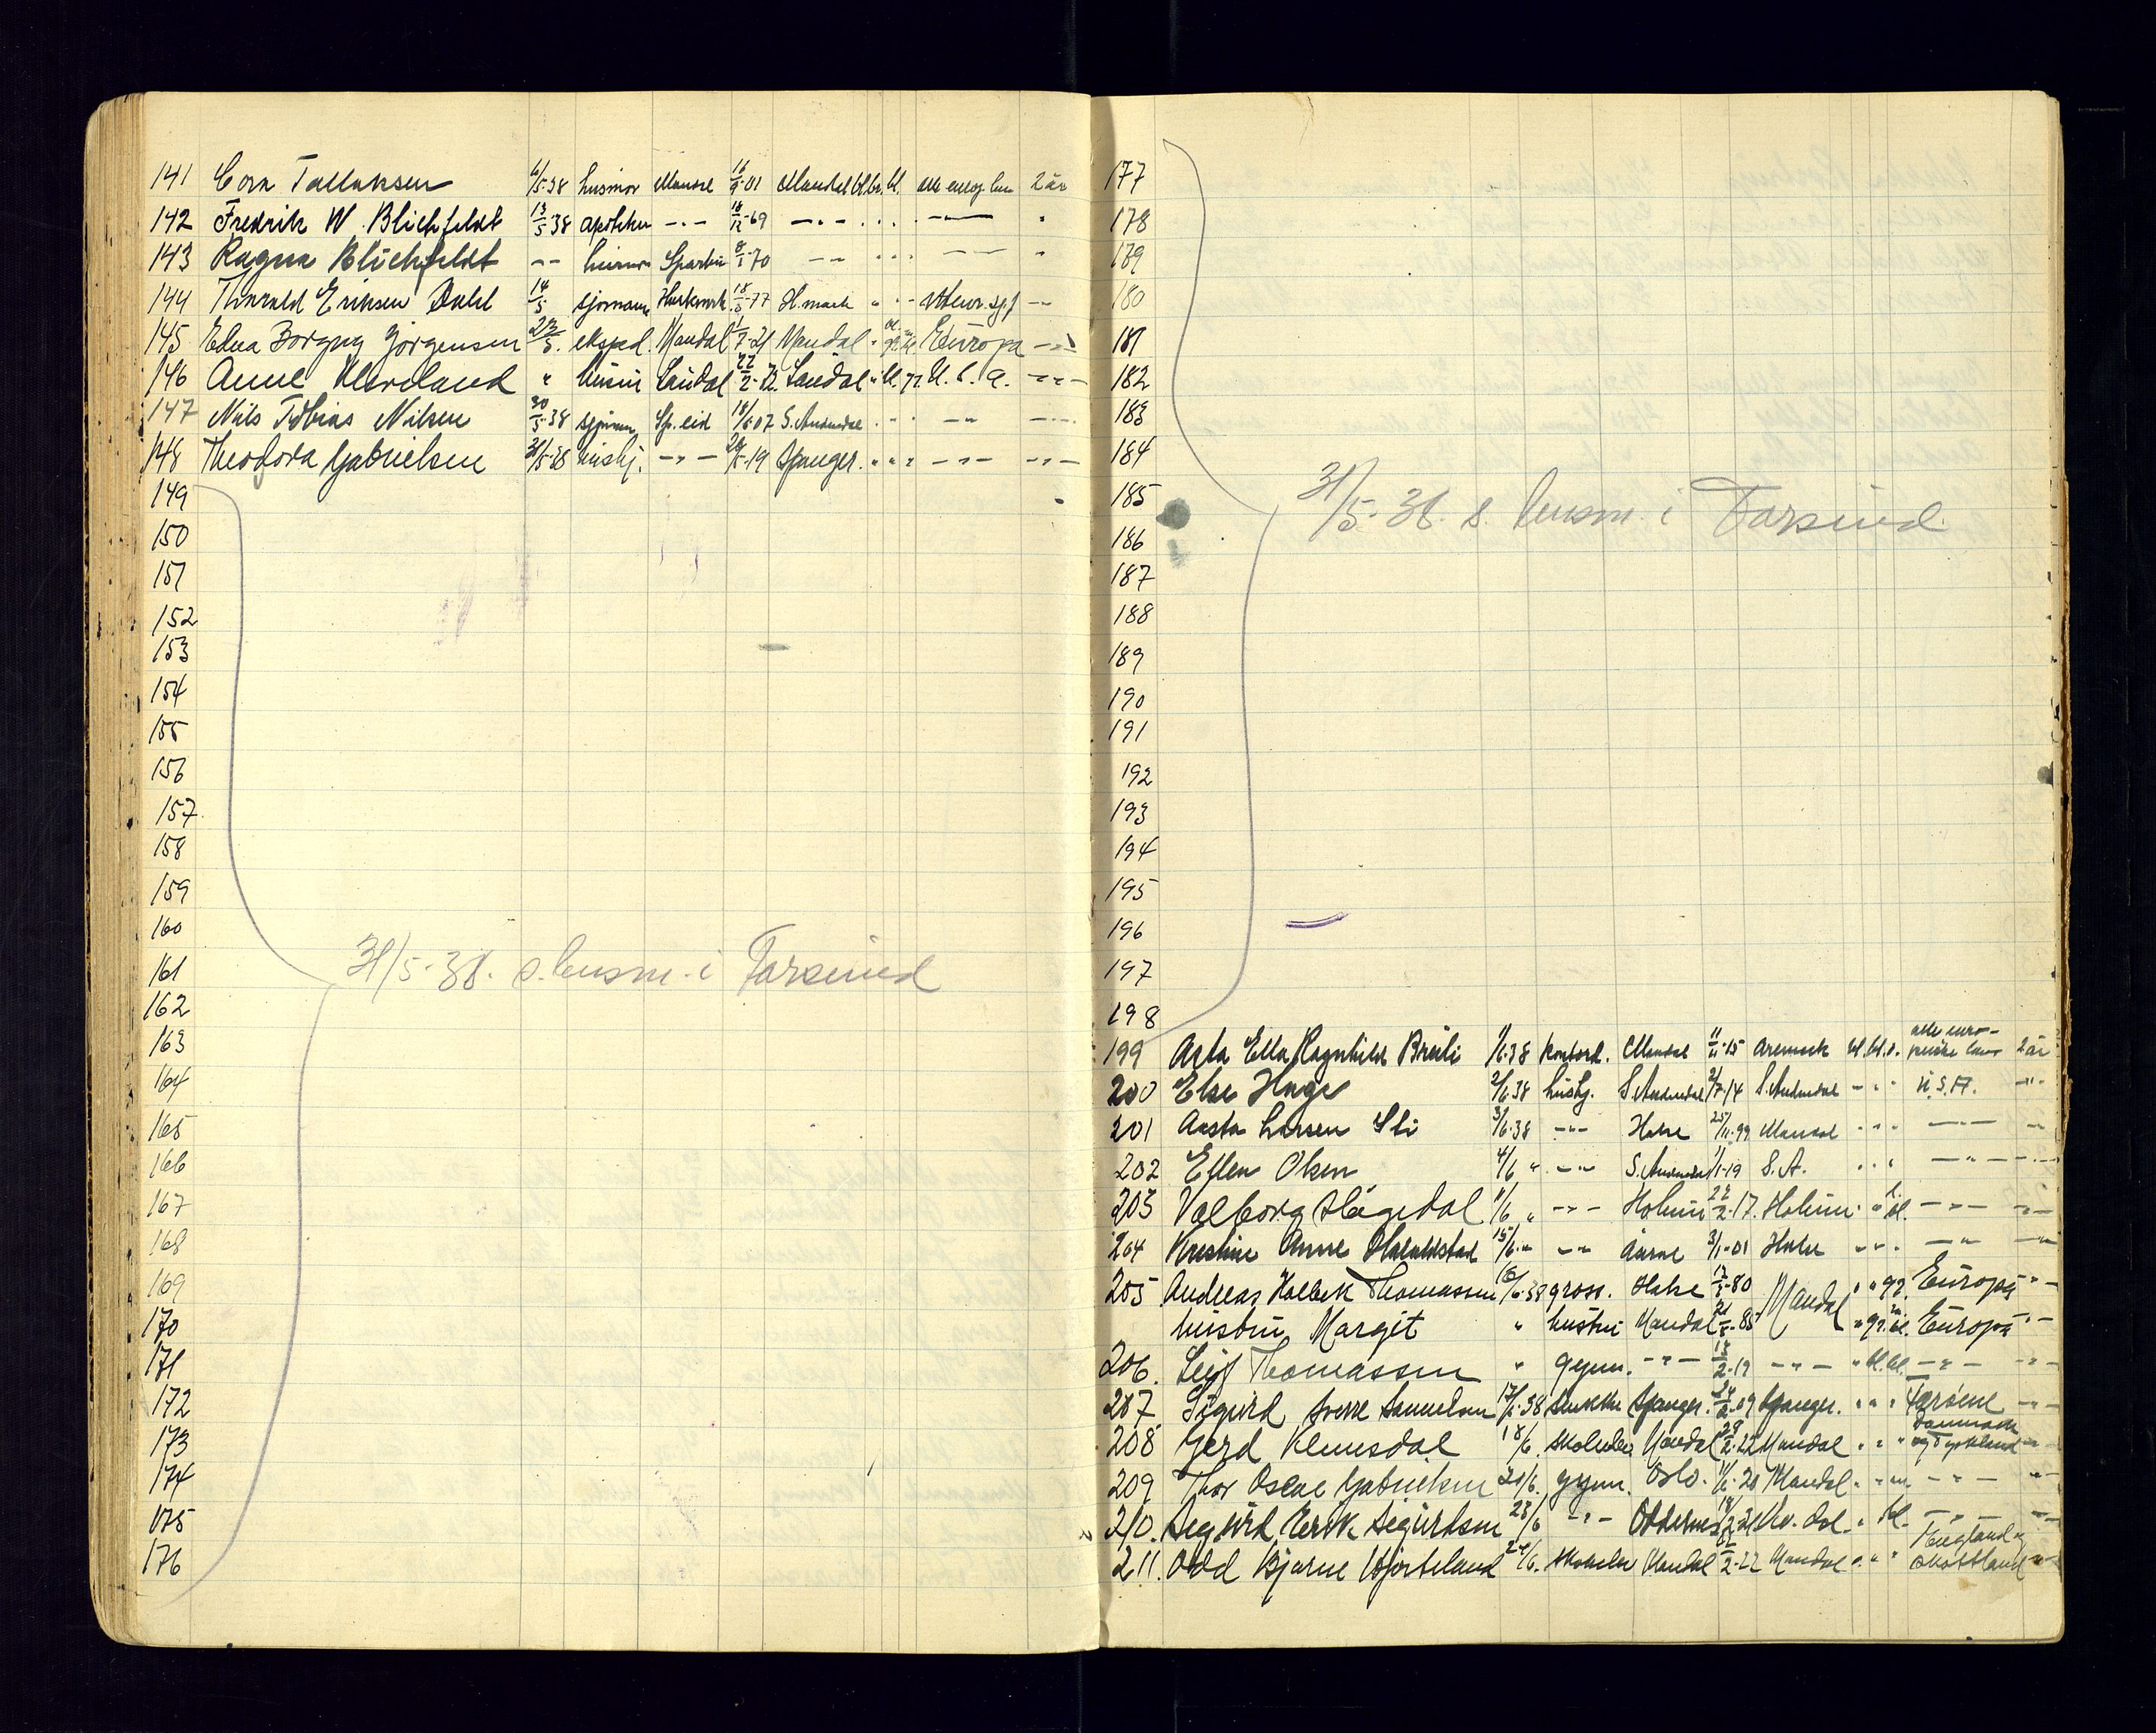 141 Cora Tallaksen 6/5-38 husmor Mandal 16/9-01 Mandal bl. br. bl. alle 2 år
142 Fredrik W. Blichfeldt 13/5 38 apotheker -"- 18/12-69 -"-
143 Ragna Blichfeldt -"- 8/1-70 -"-
144 Thorvald Eriksen Dahl 14/5 sjømann 18/5-77 H.mark
145 Edna Borgny Jørgensen 23/5. eksped. Mandal 1/7-21 Mandal Europa
146 Anne Kleveland " hustru Laudal 22/2- Laudal " bl. gr. U.S.A. -"-
147 Nils Tobias Nilsen 30/5-38 sjømann Sp.eid 18/6 07 S. Audnedal -"-
148 Theodora Gabrielsen 31/5-38 hushj. -"- 28/5-19 Spanger. " " " -"- -"-
149
150
151
152
153
154
155
156
157.
158
159
160
161
31/5-38. s. lensm. i Farsund
162
163
164
165
166
167
168
169
170
171
172
173
174
175
176
177
178
179
180
181
182
183
184
185
31/5-38. s. lensm. i Farsund.
186
187
188
189
190
191
192
193
194
195
196
197
198
199 Asta Ella Ragnhild Bråli 1/6-38 kontord. Mandal 11/11-15 Aremark bl. bl. alle euro-
peiske land 2 år
200 Else Hage 2/6 38 hushj. S. Audnedal 2/7-14 S. Audnedal -"- U.S.A. -"-
201 Aasta Larsen Sli 3/6-38 -"- Halse 25/11-99 Mandal -"-
202 Ellen Olsen 4/6 " -"- S. Audnedal 1/1-19 S.A. -"-
203 Valborg Hågedal 11/6 " -"- Holum 22/2-17. Holum -"-
204 Kristine Anne Haraldstad 15/6 " -"- 3/1-01 Halse -"-
205 Andreas Holbek Thomassen 16/6-38 gross. Halse 80 Mandal " " gr. Europa -"-
hustru Margit " hustru Mandal 85 " gr. bl. Europa -"-
206. Leif Thomassen " gymn. -"- 13/2-19 -"- " bl. bl. -"- -"-
207 Sigurd Sverre Samuelsen 17/6-38 Spanger. 09 Spanger. " " " Færøene -"-
208 Gerd Klemsdal 18/6. skoleelev Mandal 2-22 Mandal " " " Danmark
og Tyskland -"-
209 Thor Oscar Gabrielsen 20/6. gymn. Oslo. 20 Mandal " -"-
210. Sigurd Eirik Sigurdsen 23/6 -"- Oddernes Kv. dal. " bl. -"-
211. Odd Bjarne Hjorteland 24/6. skoleelev Mandal 2-22 Mandal " " " England og
Skottland -"-